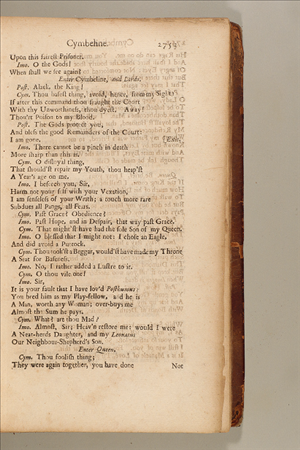 Cymbeline. 2759
Upon this fairest Prisoner.
Imo. O the Gods!
When shall we see again?
Enter Cymbeline, and Lords.
Post. Alack, the King!
Cym. Thou basest thing, avoid, hence, from my Sight:
If after this command thou fraught the Court
With thy Unworthiness, thou dy'st. Away
Thou'rt Poison to my Blood.
Post. The Gods protect you,
And bless the good Remainders of the Court:
I am gone. [Exit.
Imo. There cannot be a pinch in death
More sharp than this is.
Cym. O disloyal thing,
That should'st repair my Youth, thou heap'st
A Year's age on me.
Imo. I beseech you, Sir,
Harm not your self with your Vexation,
I am senseless of your Wrath; a touch more rare
Subdues all Pangs, all Fears.
Cym. Past Grace? Obedience?
Imo. Past Hope, and in Despair, that way past Grace.
Cym. That might'st have had the sole Son of my Queen.
Imo. O blessed that I might not: I chose an Eagle,
And did avoid a Puttock.
Cym. Thou took'st a Beggar, would'st have made my Throne
A Seat for Baseness.
Imo. No, I rather added a Lustre to it.
Cym. O thou vile one!
Imo. Sir,
It is your fault that I have lov'd Posthumus:
You bred him as my Play-fellow, and he is
A Man, worth any Woman; over-buys me
Almost the Sum he pays.
Cym. What? art thou Mad?
Imo. Almost, Sir; Heav'n restore me: would I were
A Neat-herds Daughter, and my Leonatus
Our Neighbour-Shepherd's Son.
Enter Queen.
Cym. Thou foolish thing;
They were again together, you have done
Not